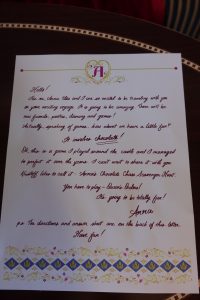 A
Hello!
This is Anna. Elsa and I are so excited to be traveling with you
on your exciting voyage. It is going to be amazing! There will be
new friends, parties, dancing and games!
Actually, speaking of games, how about we have a little fun?
It involves chocolate!
Ok, this is a game I played around the castle and I managed
to perfect it over the years. I can't wait to share it with you.
Kristoff likes to call it Anna's Chocolate Chase Scavenger Hunt.
You have to play - Elsa's Orders!
It's going to be totally fun!
Anna
p.s. The directions and answer sheet are on the back of this letter.
Have fun!